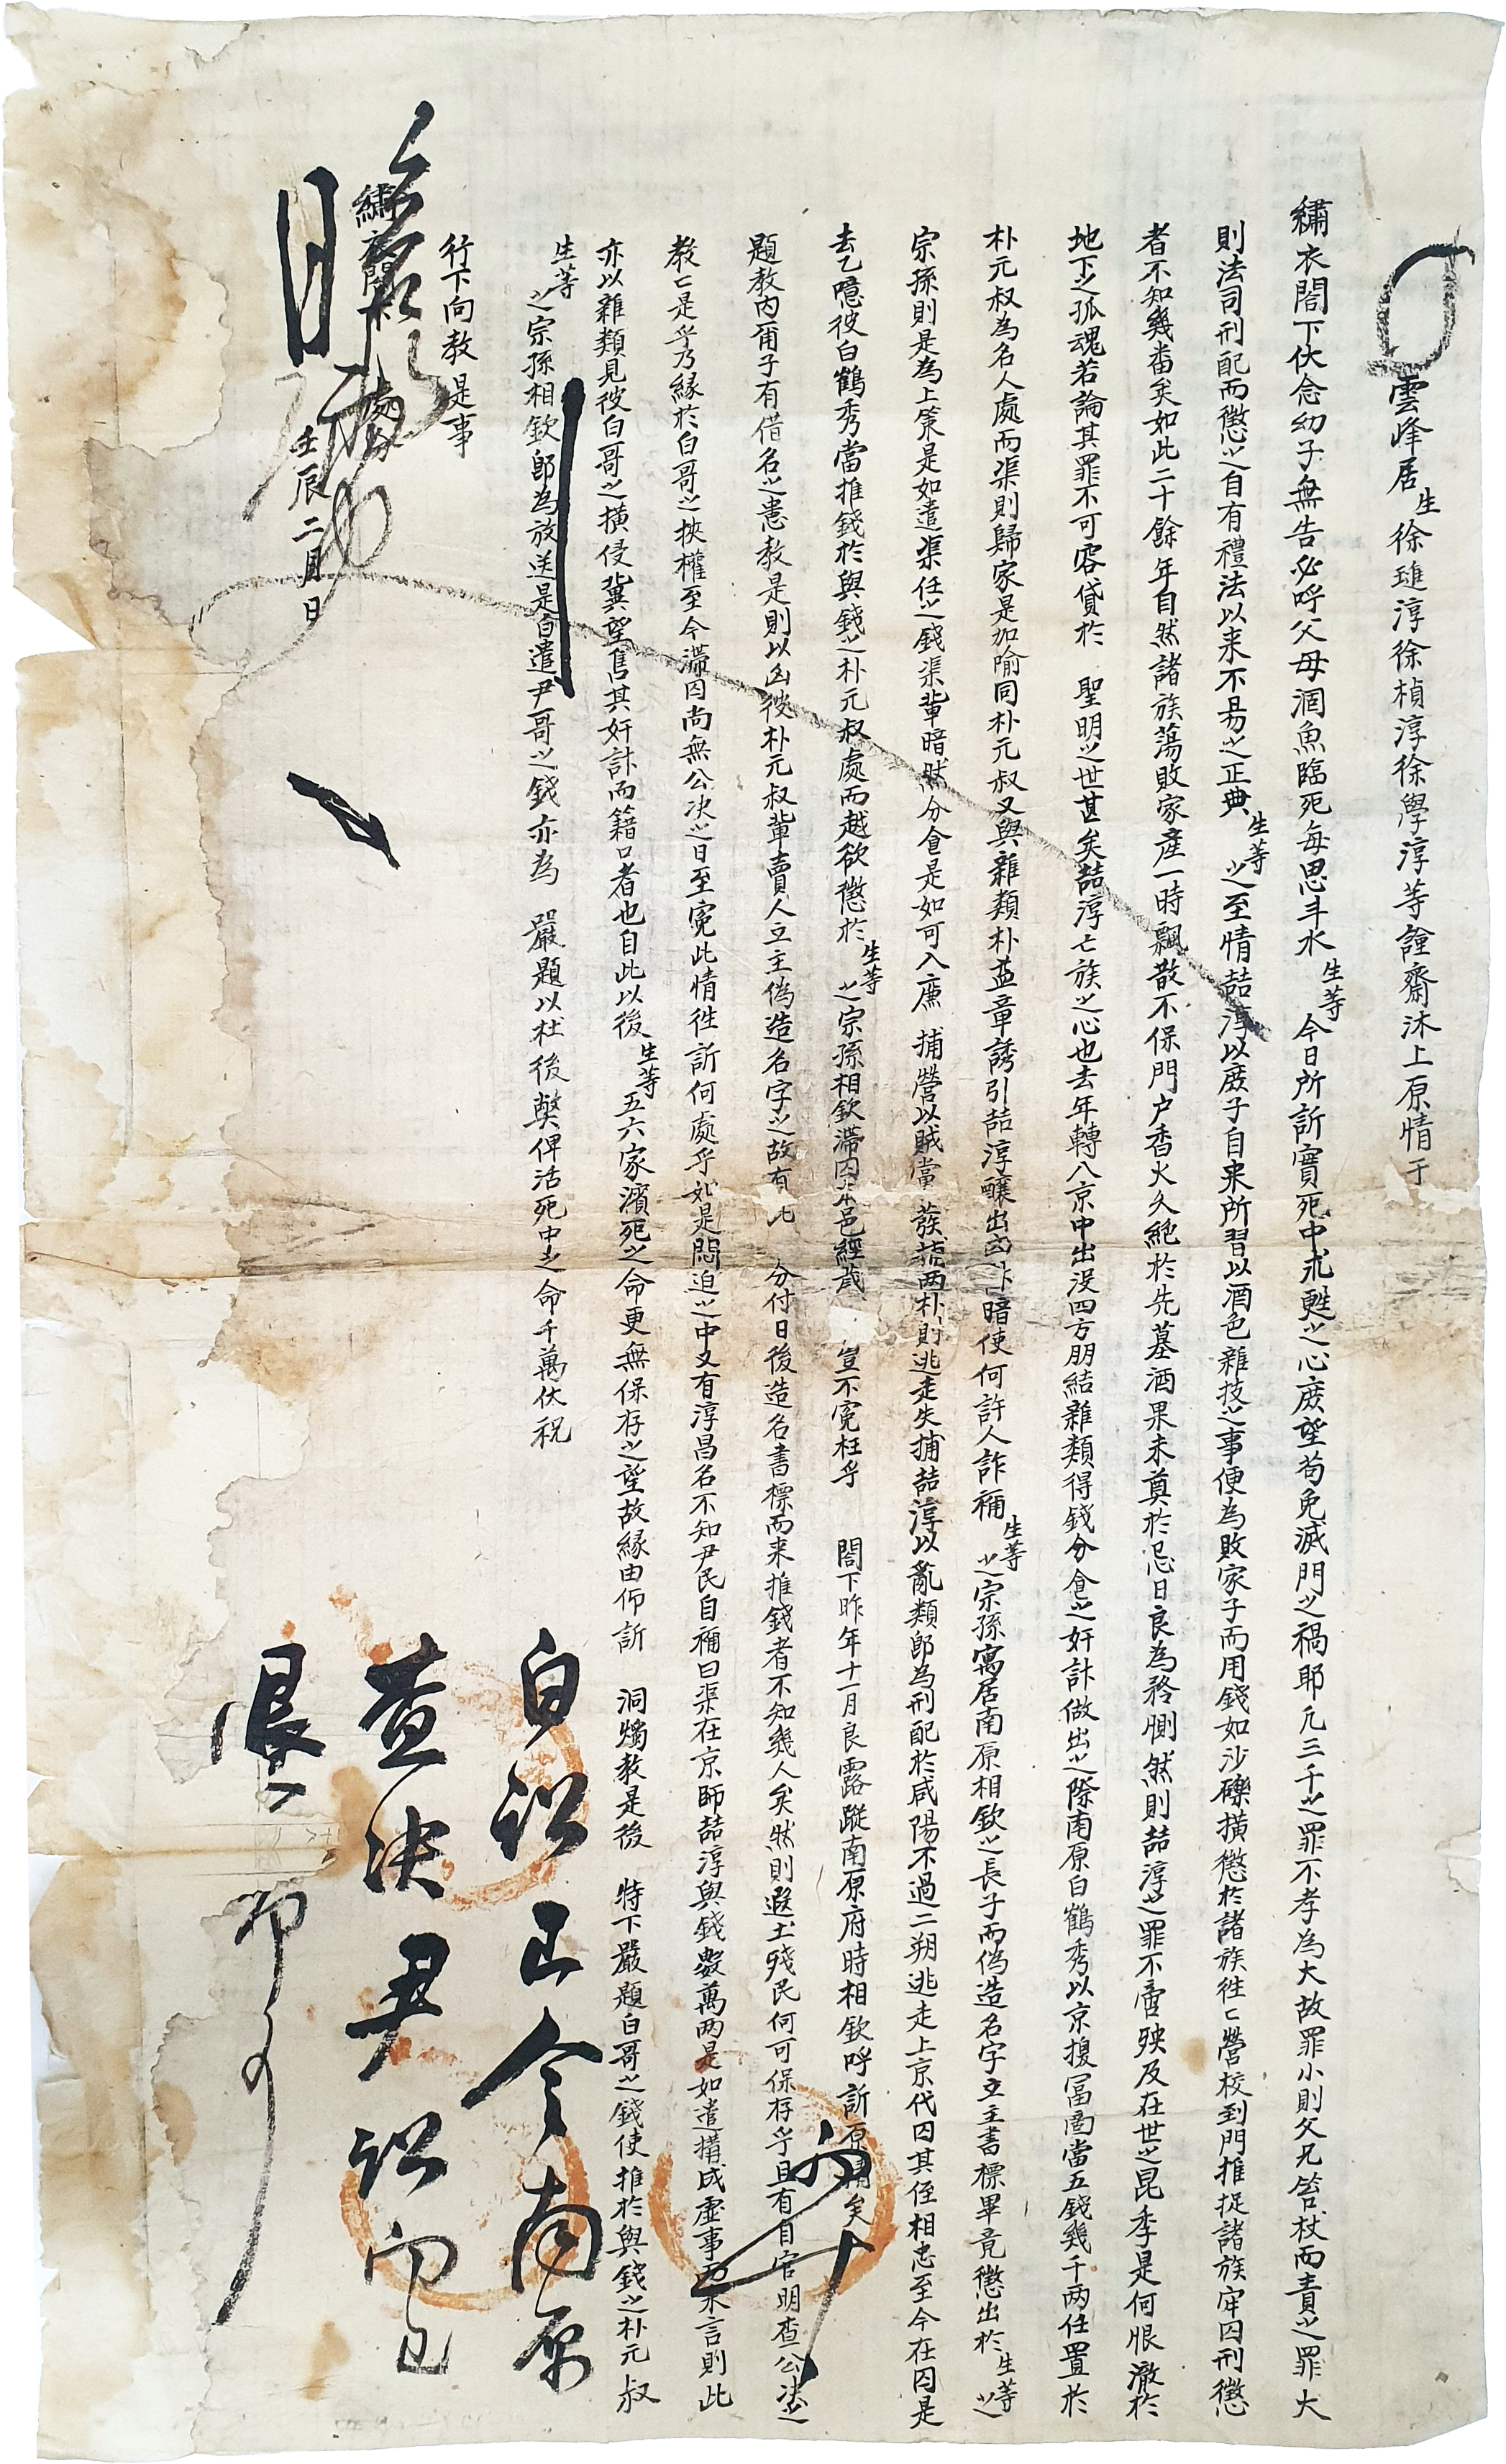 雲峰居生徐琟淳徐楨淳徐學淳等謹齋沐上原情于
繡衣閤下伏念幼子無告必呼父母涸魚臨死每思斗水生等今日所訴實死中求甦之心庶望苟免滅門之禍耶凡三千之罪不孝為大故罪小則父兄笞杖而責之罪大
則法司刑配而懲之自有禮法以来不易之正典生等之至情喆淳以庶子自来所習以酒色雜技之事便為敗家子而用錢如沙礫橫懲於諸族徃〻營校到門推捉諸族牢囚刑懲
者不知幾畨矣如此二十餘年自然諸族蕩敗家産一時飄散不保門户香火久絶於先墓酒果未奠於忌日良為矜惻然則喆淳之罪不啻殃及在世之昆季是何恨澈於
地下之孤魂若論其罪不可容貸於 聖明之世甚矣喆淳亡族之心也去年轉入京中出沒四方朋結雜類得錢分食之奸計做出之際南原白鶴秀以京搜冨啚當五錢幾千两任置於
朴元叔為名人處而渠則歸家是加喻同朴元叔又與雜類朴益章誘引喆淳釀出凶计暗使何許人詐稱生等之宗孫寓居南原相欽之長子而偽造名字立主書標畢竟懲出於生等之
宗孫則是為上策是如遣渠任之錢渠輩暗然分食是如可入廉 捕營以賊當 蔟蔬两朴則逃走失捕喆淳以亂類郎為刑配於咸陽不過二朔逃走上京代囚其侄相忠至今在囚是
去乙噫彼白鶴秀當推錢於與錢之朴元叔處而越欲懲於生等之宗孫相欽滯囚本邑經歲 豈不寃枉乎 閤下昨年十一月良露蹤南原府時相欽呼訴原情矣
題教内甭子有借名之患教是則以凶彼朴元叔輩賣人立主偽造名字之故有此 分付日後造名書標而来推錢者不知幾人矣然則遐土殘民何可保存乎且有自官明查公决之
教〻是乎乃緣於白哥之挾權至今滯囚尚無公决之日至寃此情徃訴何處乎如是悶迫之中又有淳昌名不知尹民自稱曰渠在京師喆淳與錢數萬两是如遣搆成虚事而来言則此
亦以雜類見彼白哥之橫侵冀望售其奸計而籍口者也自此以後生等五六家濱死之命更無保存之望故緣由仰訴 洞燭教是後 特下嚴題白哥之錢使推於與錢之朴元叔
生等之宗孫相欽郎為放送是白遣尹哥之錢亦為 嚴題以杜後弊俾活死中之命千萬伏祝
行下向教是事
繡衣閤下 處分
壬辰二月日
白訟已令南原
查决尹訟向已